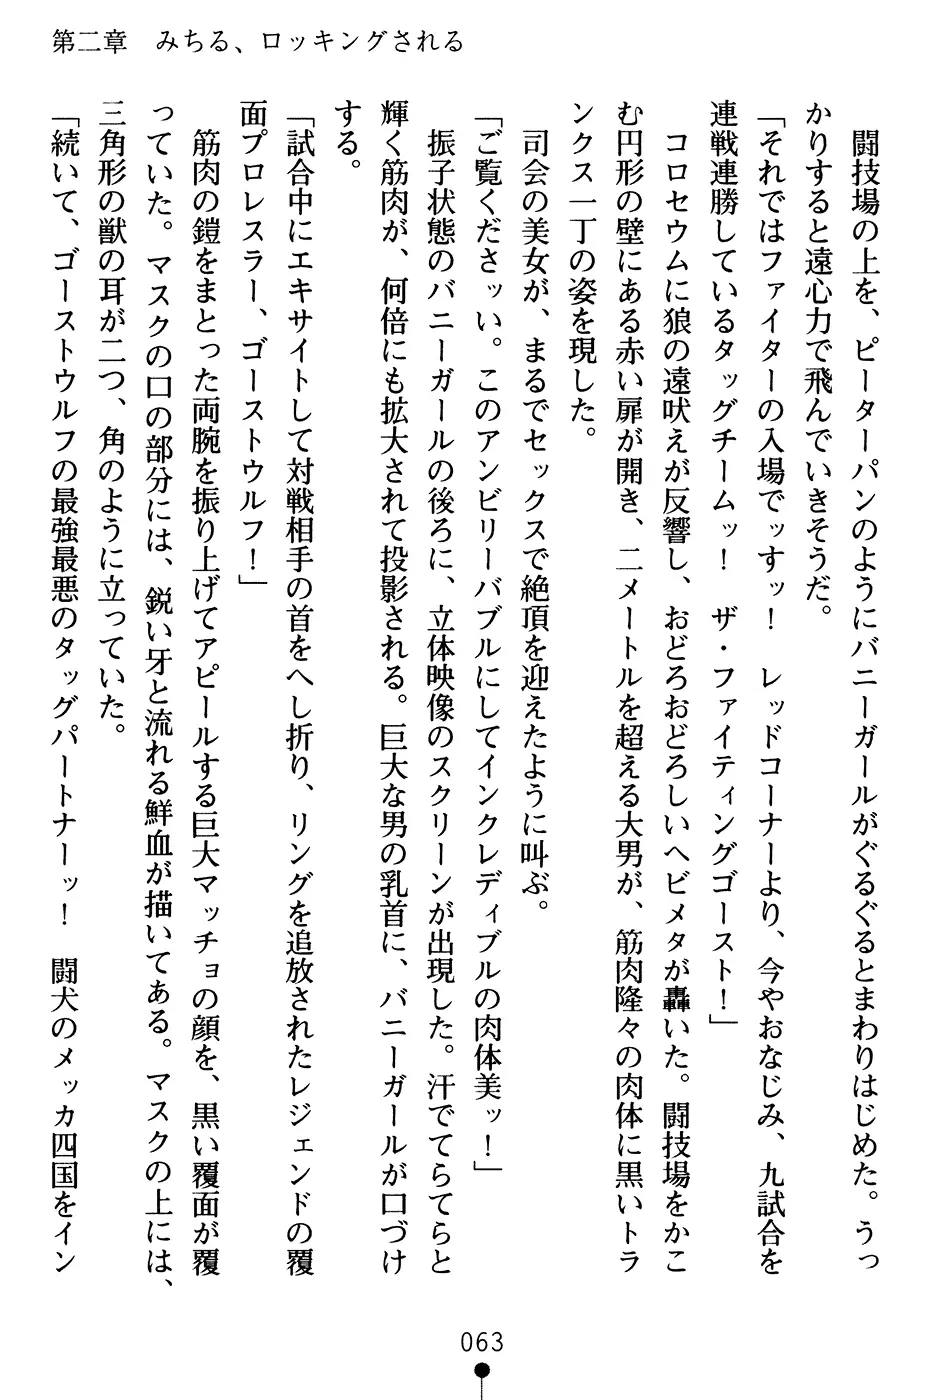 第二章　みちる、ロッキングされる
　闘技場の上を、ピーターパンのようにバニーガールがぐるぐるとまわりはじめた。うっ
かりすると遠心力で飛んでいきそうだ。
「それではファイターの入場でッすッ！　レッドコーナーより、今やおなじみ、九試合を
連戦連勝しているタッグチームッ！　ザ・ファイティングゴースト！」
　コロセウムに狼の遠吠えが反響し、おどろおどろしいヘビメタが轟いた。闘技場をかこ
む円形の壁にある赤い扉が開き、二メートルを超える大男が、筋肉隆々の肉体に黒いトラ
ンクス一丁の姿を現した。
　司会の美女が、まるでセックスで絶頂を迎えたように叫ぶ。
「ご覧くださッい。このアンビリーバブルにしてインクレディブルの肉体美ッ！」
　振子状態のバニーガールの後ろに、立体映像のスクリーンが出現した。汗でてらてらと
輝く筋肉が、何倍にも拡大されて投影される。巨大な男の乳首に、バニーガールが口づけ
する。
「試合中にエキサイトして対戦相手の首をへし折り、リングを追放されたレジェンドの覆
面プロレスラー、ゴーストウルフ！」
　筋肉の鎧をまとった両腕を振り上げてアピールする巨大マッチョの顔を、黒い覆面が覆
っていた。マスクの口の部分には、鋭い牙と流れる鮮血が描いてある。マスクの上には、
三角形の獣の耳が二つ、角のように立っていた。
「続いて、ゴーストウルフの最強最悪のタッグパートナーッ！　闘犬のメッカ四国をイン
063